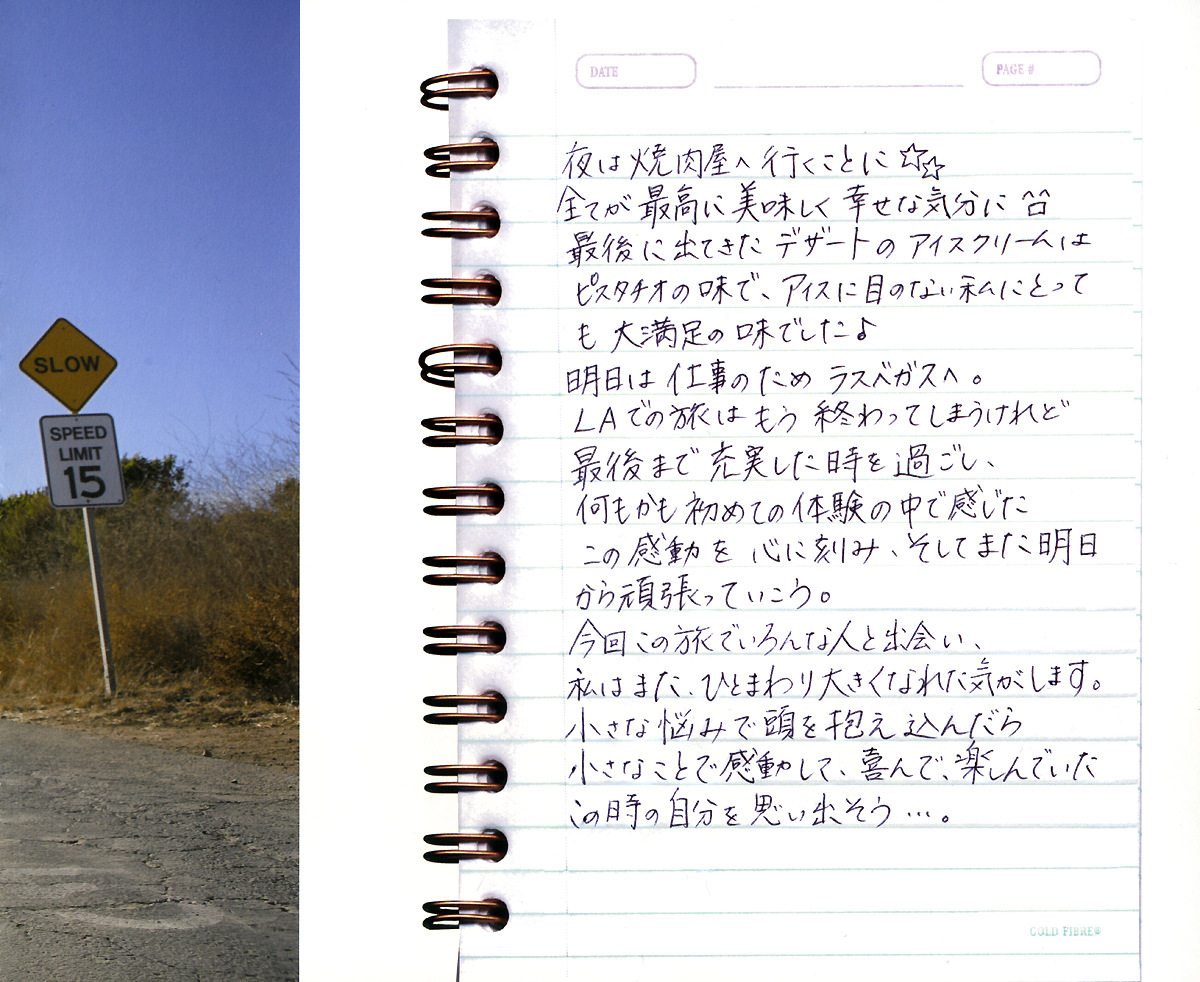 SLOW
SPEED
LIMIT
15
DATE
PAGE #
夜は焼肉屋へ行くことに☆☆
全てが最高に美味しく幸せな気分に^口^
最後に出てきたデザートのアイスクリームは
ピスタチオの味で、アイスに目のない私にとって
も大満足の味でした♪
明日は仕事のためラスベガスへ。
LAでの旅はもう終わってしまうけれど
最後まで充実した時を過ごし、
何もかも初めての体験の中で感じた
この感動を心に刻み、そしてまた明日
から頑張っていこう。
今回この旅でいろんな人と出会い、
私はまた、ひとまわり大きくなれた気がします。
小さな悩みで頭を抱え込んだら
小さなことで感動して、喜んで、楽しんでいた
この時の自分を思い出そう…。
GOLD FIBRE®